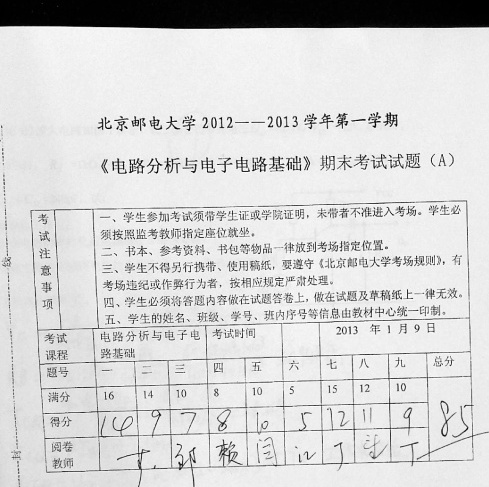 北京邮电大学2012——2013学年第一学期
《电路分析与电子电路基础》期末考试试题（A）
考试注意事项
一、学生参加考试须带学生证或学院证明，未带者不准进入考场。学生必
须按照监考教师指定座位就坐。
二、书本、参考资料、书包等物品一律放到考场指定位置。
三、学生不得另行携带、使用稿纸，要遵守《北京邮电大学考场规则》，有
考场违纪或作弊行为者，按相应规定严肃处理。
四、学生必须将答题内容做在试题答卷上，做在试题及草稿纸上一律无效。
五、学生的姓名、班级、学号、班内序号等信息由教材中心统一印制。
考试课程 电路分析与电子电路基础 考试时间 2013 年 1 月 9 日
题号 一 二 三 四 五 六 七 八 九 总分
满分 16 14 10 8 10 5 15 12 10
得分 14 9 7 8 10 5 12 11 9 85
阅卷教师 郭 赖 闫 江 丁 丁